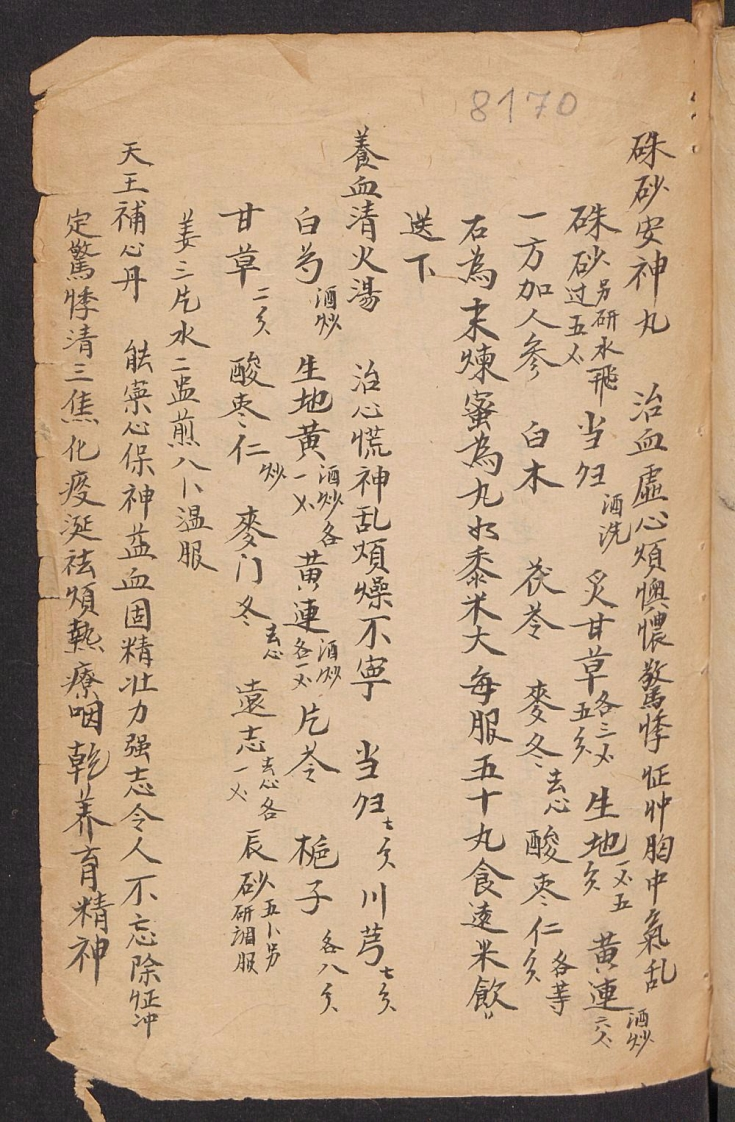 8170
硃砂安神丸 治血虛心煩懊憹驚悸怔忡胸中氣乱
硃砂另研水飛过五 当归酒洗 炙甘草各三 五 生地一 五 黄連酒炒
一方加人參 白木 茯苓 麥冬去心 酸枣仁各等
右為末煉蜜為丸如黍米大每服五十丸食遠米飲
送下
養血清火湯 治心慌神乱煩燥不寧 当归七 川芎七
白芍酒炒 生地黄酒炒各一 黄連酒炒各一 片苓 梔子各八
甘草二 酸枣仁炒 麥门冬去心 遠志去心各一 辰砂五卜另研調服
姜三片水二盅煎八卜温服
天王補心丹 能寧心保神益血固精壯力强志令人不忘除怔冲
定驚悸清三焦化痰涎祛煩熱療咽乾养育精神